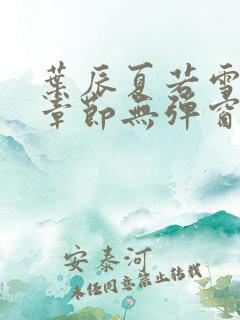 葉辰夏若雪
章節無彈窗
安泰河
未经同意禁止转载